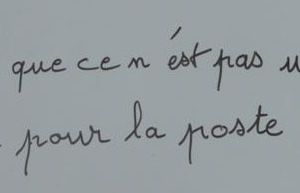 que ce n'est pas
pour la poste